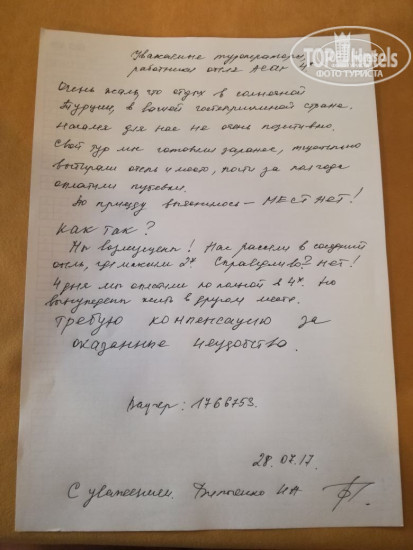 TOP Hotels
ФОТО ТУРИСТА
Уважаемые туроператоры,
работники отеля Acar 4*
Очень жаль, что отдых в солнечной
Турции, в вашей гостеприимной стране
начался для нас не очень позитивно.
Свой тур мы готовили заранее, тщательно
выбирали отель и место, почти за полгода
оплатили путевки.
По приезду выяснилось - МЕСТ НЕТ!
КАК ТАК?
Мы возмущены! Нас расселили в соседний
отель, где максимум 2* Справедливо? НЕТ!
4 дня мы оплатили по полной в 4*. Но
вынуждены жить в другом месте.
ТРЕБУЮ КОМПЕНСАЦИЮ ЗА
оказанные неудобства.
Ваучер: 1766753.
28.07.17.
С уважением НА